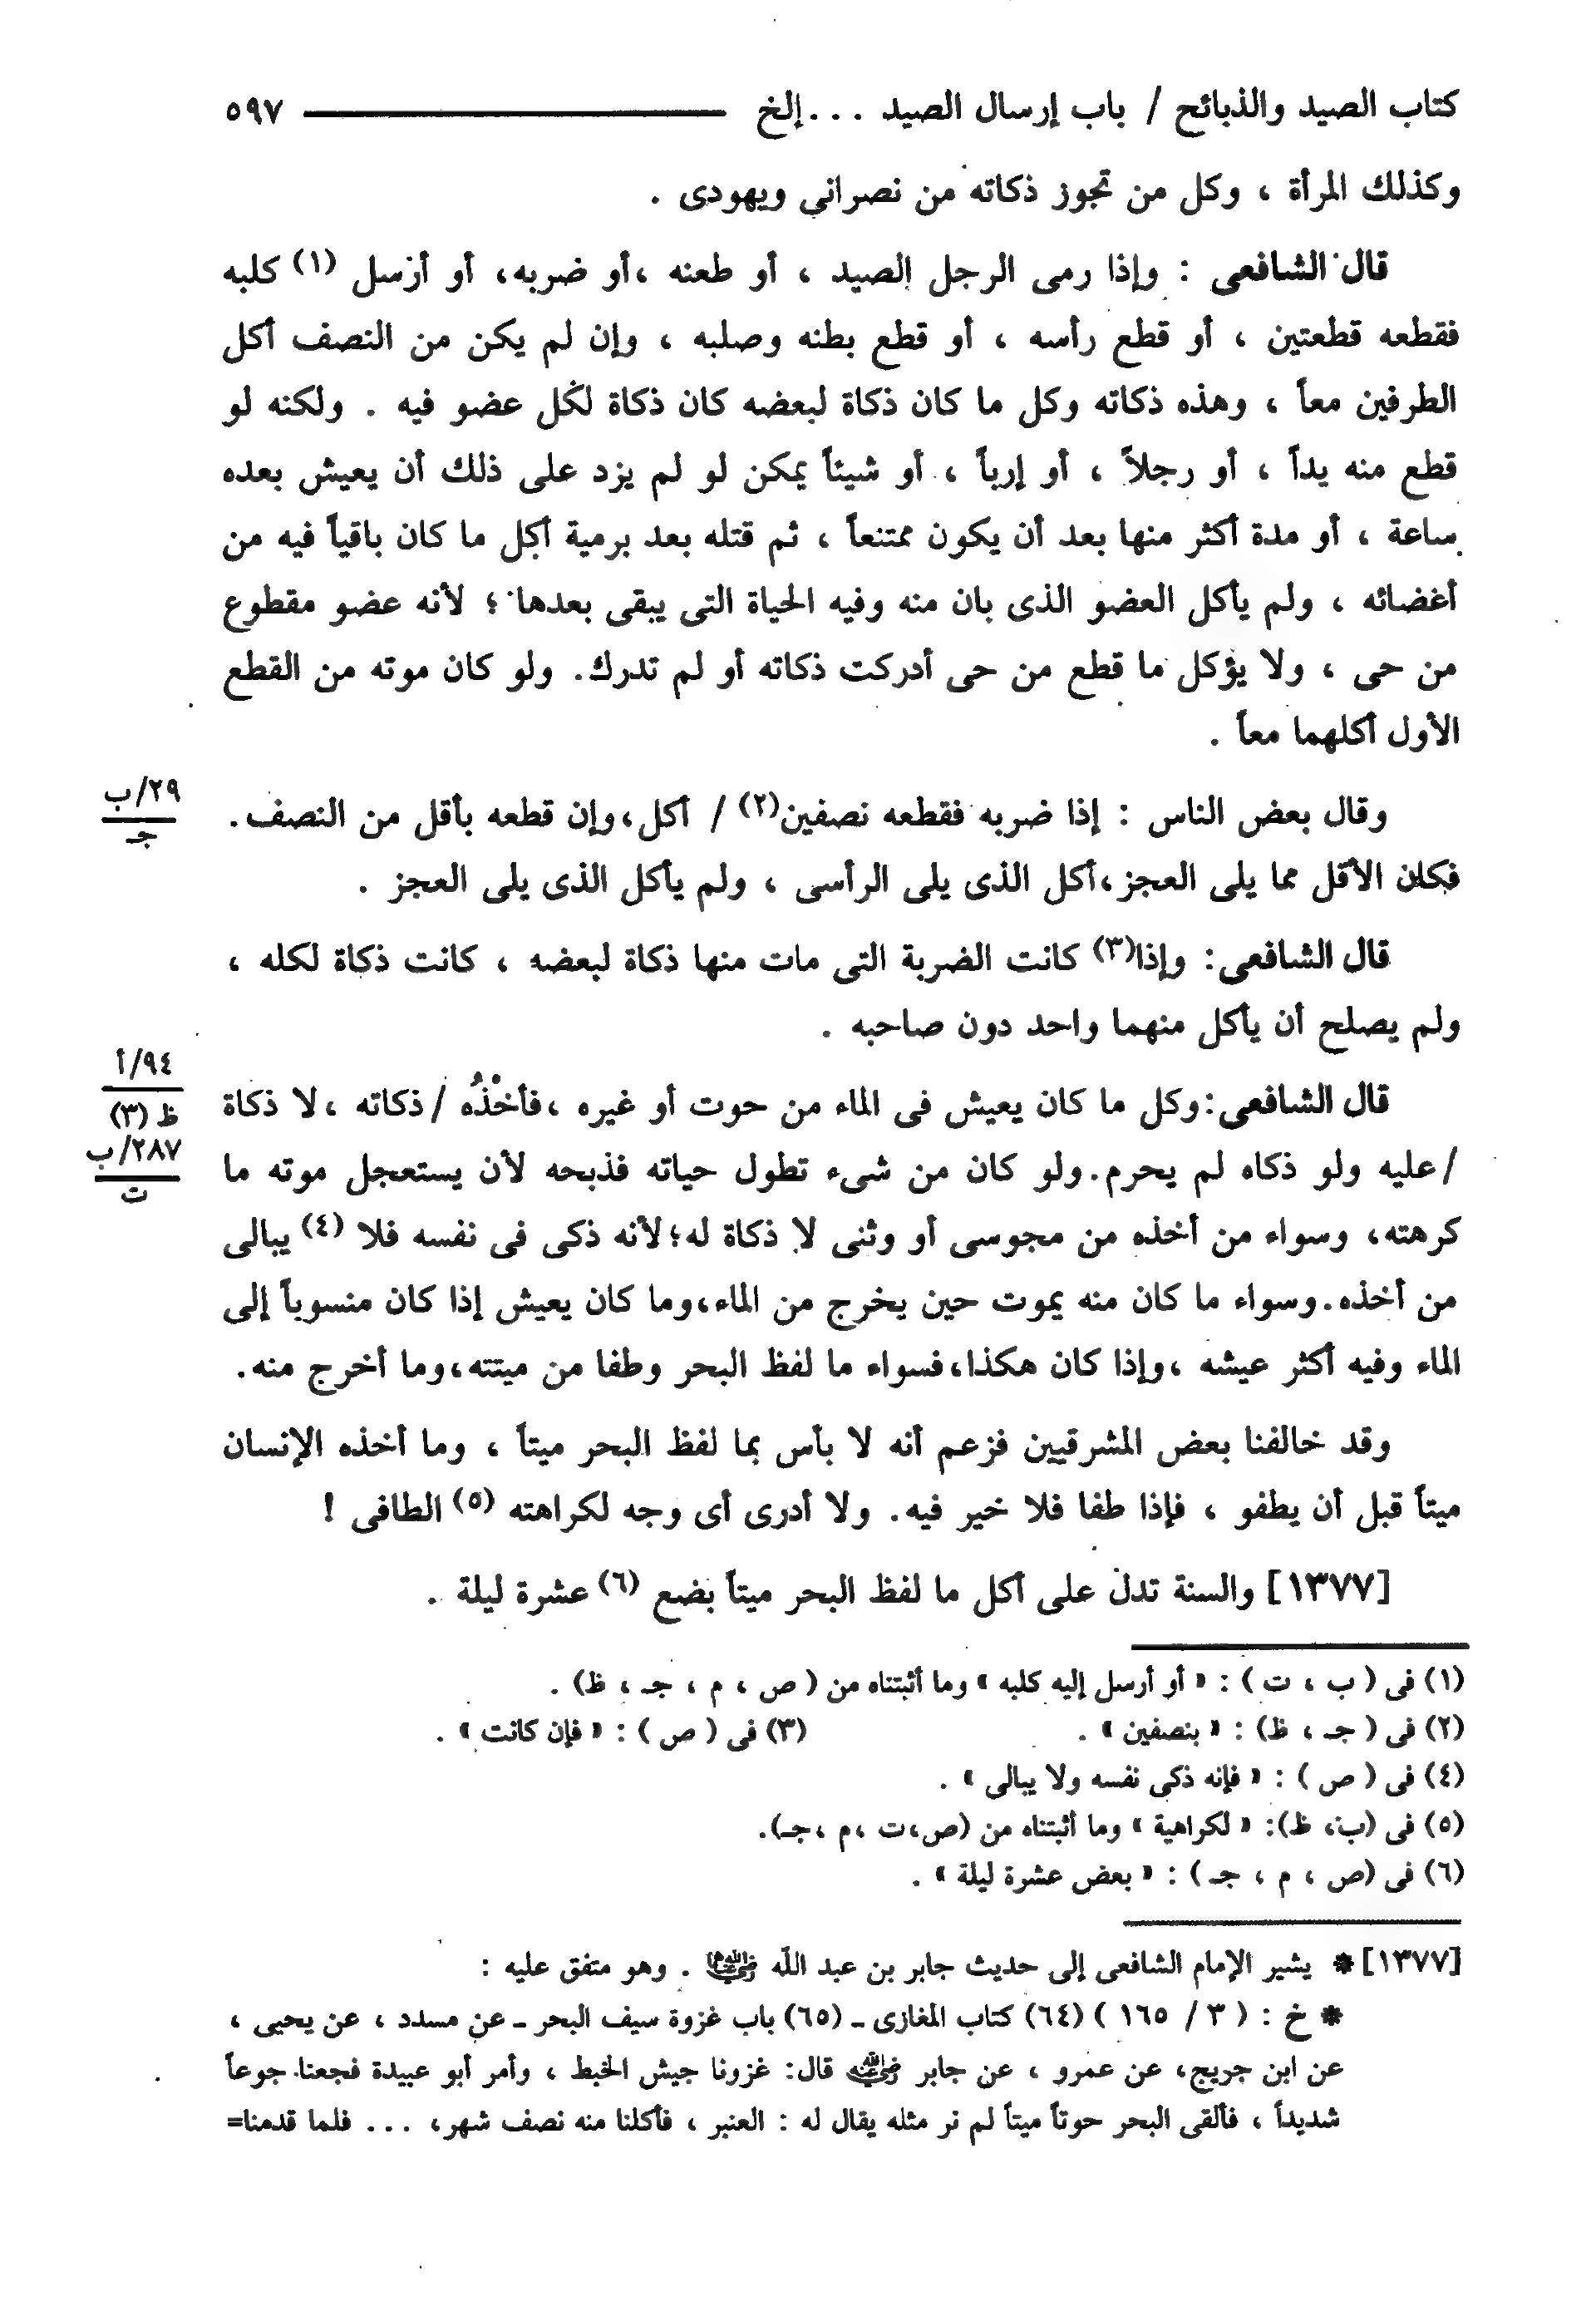 كتاب الصيد والذبائح / باب إرسال الصيد . . . إلخ ٥٩٧
وكذلك المرأة ، وكل من تجوز ذكاته من نصرانى ويهودى .
قال الشافعى : وإذا رمى الرجل الصيد ، أو طعنه ،أو ضربه، أو أرسل (١) كلبه
فقطعه قطعتين ، أو قطع رأسه ، أو قطع بطنه وصلبه ، وإن لم يكن من النصف أكل
الطرفين معاً ، وهذه ذكاته وكل ما كان ذكاة لبعضه كان ذكاة لكل عضو فيه . ولكنه لو
قطع منه يداً ، أو رجلاً ، أو إرباً ، أو شيئاً يمكن لو لم يزد على ذلك أن يعيش بعده
ساعة ، أو مدة أكثر منها بعد أن يكون ممتنعاً ، ثم قتله بعد برمية أكل ما كان باقياً فيه من
أعضائه ، ولم يأكل العضو الذى بان منه وفيه الحياة التى يبقى بعدها ؛ لأنه عضو مقطوع
من حى ، ولا يؤكل ما قطع من حى أدركت ذكاته أو لم تدرك. ولو كان موته من القطع
الأول أكلهما معاً .
وقال بعض الناس : إذا ضربه فقطعه نصفين(٢) / أكل،وإن قطعه بأقل من النصف.
٢٩/ب
جـ
فكان الأقل مما يلى العجز،أكل الذى يلى الرأسى ، ولم يأكل الذى يلى العجز .
قال الشافعى: وإذا(٣) كانت الضربة التى مات منها ذكاة لبعضه ، كانت ذكاة لكله ،
ولم يصلح أن يأكل منهما واحد دون صاحبه .
قال الشافعى:وكل ما كان يعيش فى الماء من حوت أو غيره ،فأخْذُه /ذكاته ،لا ذكاة
٩٤/أ
ظ (٣)
/عليه ولو ذكاه لم يحرم.ولو كان من شىء تطول حياته فذبحه لأن يستعجل موته ما
٢٨٧/ب
ت
كرهته، وسواء من أخذه من مجوسى أو وثنى لا ذكاة له؛لأنه ذكى فى نفسه فلا (٤) يبالى
من أخذه.وسواء ما كان منه يموت حين يخرج من الماء،وما كان يعيش إذا كان منسوباً إلى
الماء وفيه أكثر عيشه ،وإذا كان هكذا،فسواء ما لفظ البحر وطفا من ميتته،وما أخرج منه.
وقد خالفنا بعض المشرقيين فزعم أنه لا بأس بما لفظ البحر ميتاً ، وما أخذه الإنسان
ميتاً قبل أن يطفو ، فإذا طفا فلا خير فيه. ولا أدرى أى وجه لكراهته (٥) الطافى !
[١٣٧٧] والسنة تدل على أكل ما لفظ البحر ميتاً بضع (٦) عشرة ليلة .
(١) فى ( ب ، ت ) : « أو أرسل إليه كلبه » وما أثبتناه من ( ص ، م ، جـ ، ظ) .
(٢) فى ( جـ ، ظ) : « بنصفين » . (٣) فى ( ص ) : « فإن كانت » .
(٤) فى ( ص ) : « فإنه ذكى نفسه ولا يبالى » .
(٥) فى (ب، ظ): « لكراهية » وما أثبتناه من (ص،ت ،م ،جـ).
(٦) فى (ص ، م ، جـ ) : « بعض عشرة ليلة » .
[١٣٧٧] * يشير الإمام الشافعى إلى حديث جابر بن عبد الله رضي الله عنهما . وهو متفق عليه :
* خ : ( ٣ / ١٦٥ ) (٦٤) كتاب المغازى ـ (٦٥) باب غزوة سيف البحر ـ عن مسدد ، عن يحيى ،
عن ابن جريج، عن عمرو ، عن جابر رضي الله عنه قال: غزونا جيش الخبط ، وأمر أبو عبيدة فجعنا جوعاً
شديداً ، فألقى البحر حوتاً ميتاً لم نر مثله يقال له : العنبر ، فأكلنا منه نصف شهر، . . . فلما قدمنا=